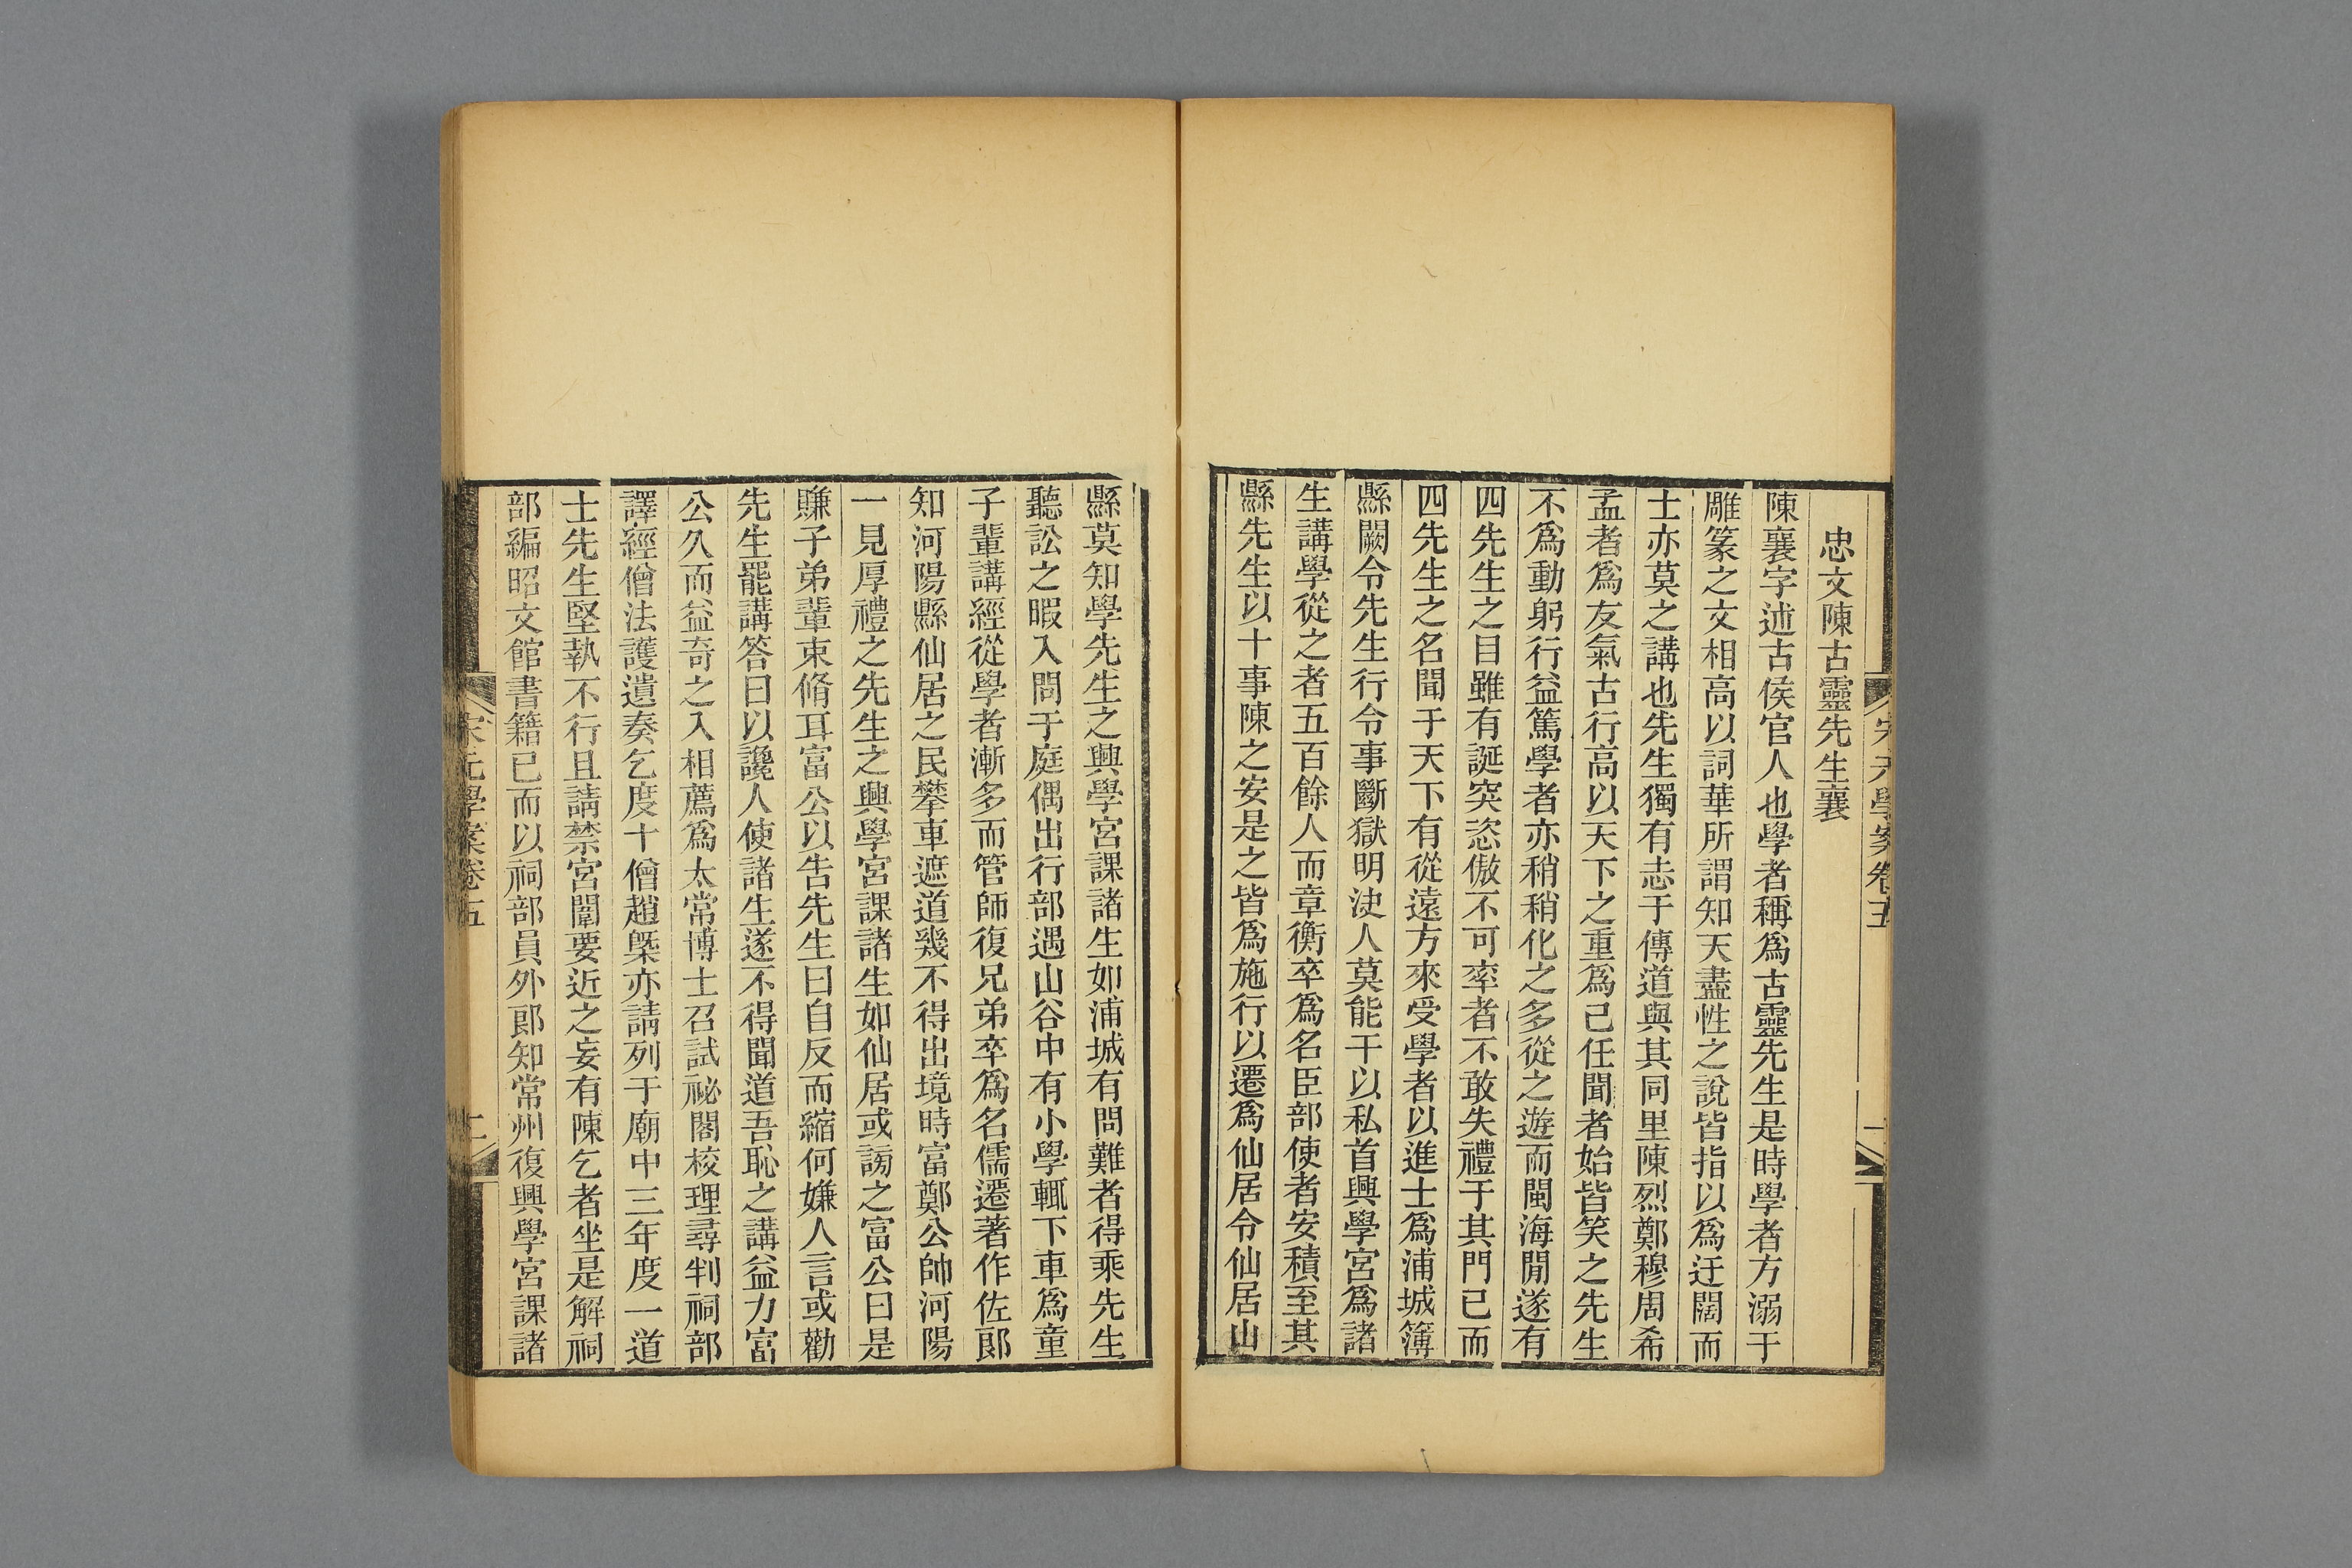 忠文陳古靈先生襄
陳襄字述古侯官人也學者稱爲古靈先生是時學者方溺于
雕篆之文相高以詞華所謂知天盡性之說皆指以爲迂闊而
士亦莫之講也先生獨有志于傳道與其同里陳烈鄭穆周希
孟者爲友氣古行高以天下之重爲己任聞者始皆笑之先生
不爲動躬行益篤學者亦稍稍化之多從之遊而閩海閒遂有
四先生之目雖有誕突恣傲不可率者不敢失禮于其門已而
四先生之名聞于天下有從遠方來受學者以進士爲浦城簿
縣闕令先生行令事斷獄明決人莫能干以私首興學宮爲諸
生講學從之者五百餘人而章衡卒爲名臣部使者安積至其
縣先生以十事陳之安是之皆爲施行以遷爲仙居令仙居山
縣莫知學先生之興學宮課諸生如浦城有問難者得乘先生
聽訟之暇入問于庭偶出行部遇山谷中有小學輒下車爲童
子輩講經從學者漸多而管師復兄弟卒爲名儒遷著作佐郎
知河陽縣仙居之民攀車遮道幾不得出境時富鄭公帥河陽
一見厚禮之先生之興學宮課諸生如仙居或謗之富公曰是
賺子弟輩束脩耳富公以告先生曰自反而縮何嫌人言或勸
先生罷講答曰以讒人使諸生遂不得聞道吾恥之講益力富
公久而益奇之入相薦爲太常博士召試祕閣校理尋判祠部
譯經僧法護遺奏乞度十僧趙槩亦請列于廟中三年度一道
士先生堅執不行且請禁宮闈要近之妄有陳乞者坐是解祠
部編昭文館書籍已而以祠部員外郎知常州復興學宮課諸
宋元學案卷五